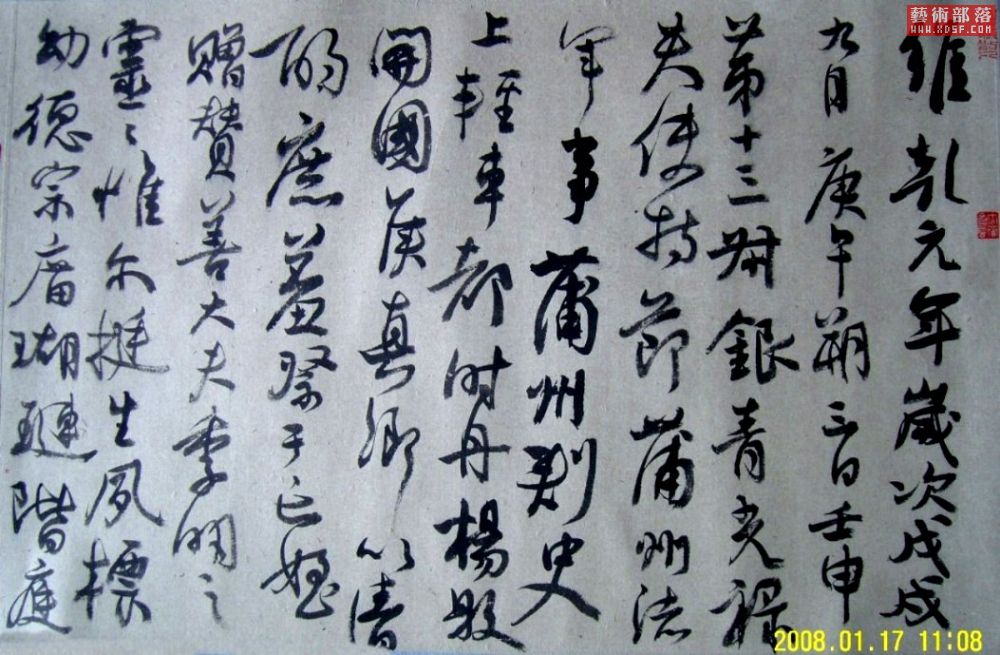 維乾元年歲次戊戌
九月庚午朔三日壬申
第十三叔銀青光祿
夫使持節蒲州諸
軍事蒲州刺史
上輕車都尉丹楊縣
開國侯真卿以清
酌庶羞祭于亡姪
贈贊善大夫季明之
靈〻惟爾挺生夙標
幼德宗廟瑚璉階庭
藝術部落
WWW.XDSF.COM
2008.01.17 11:08